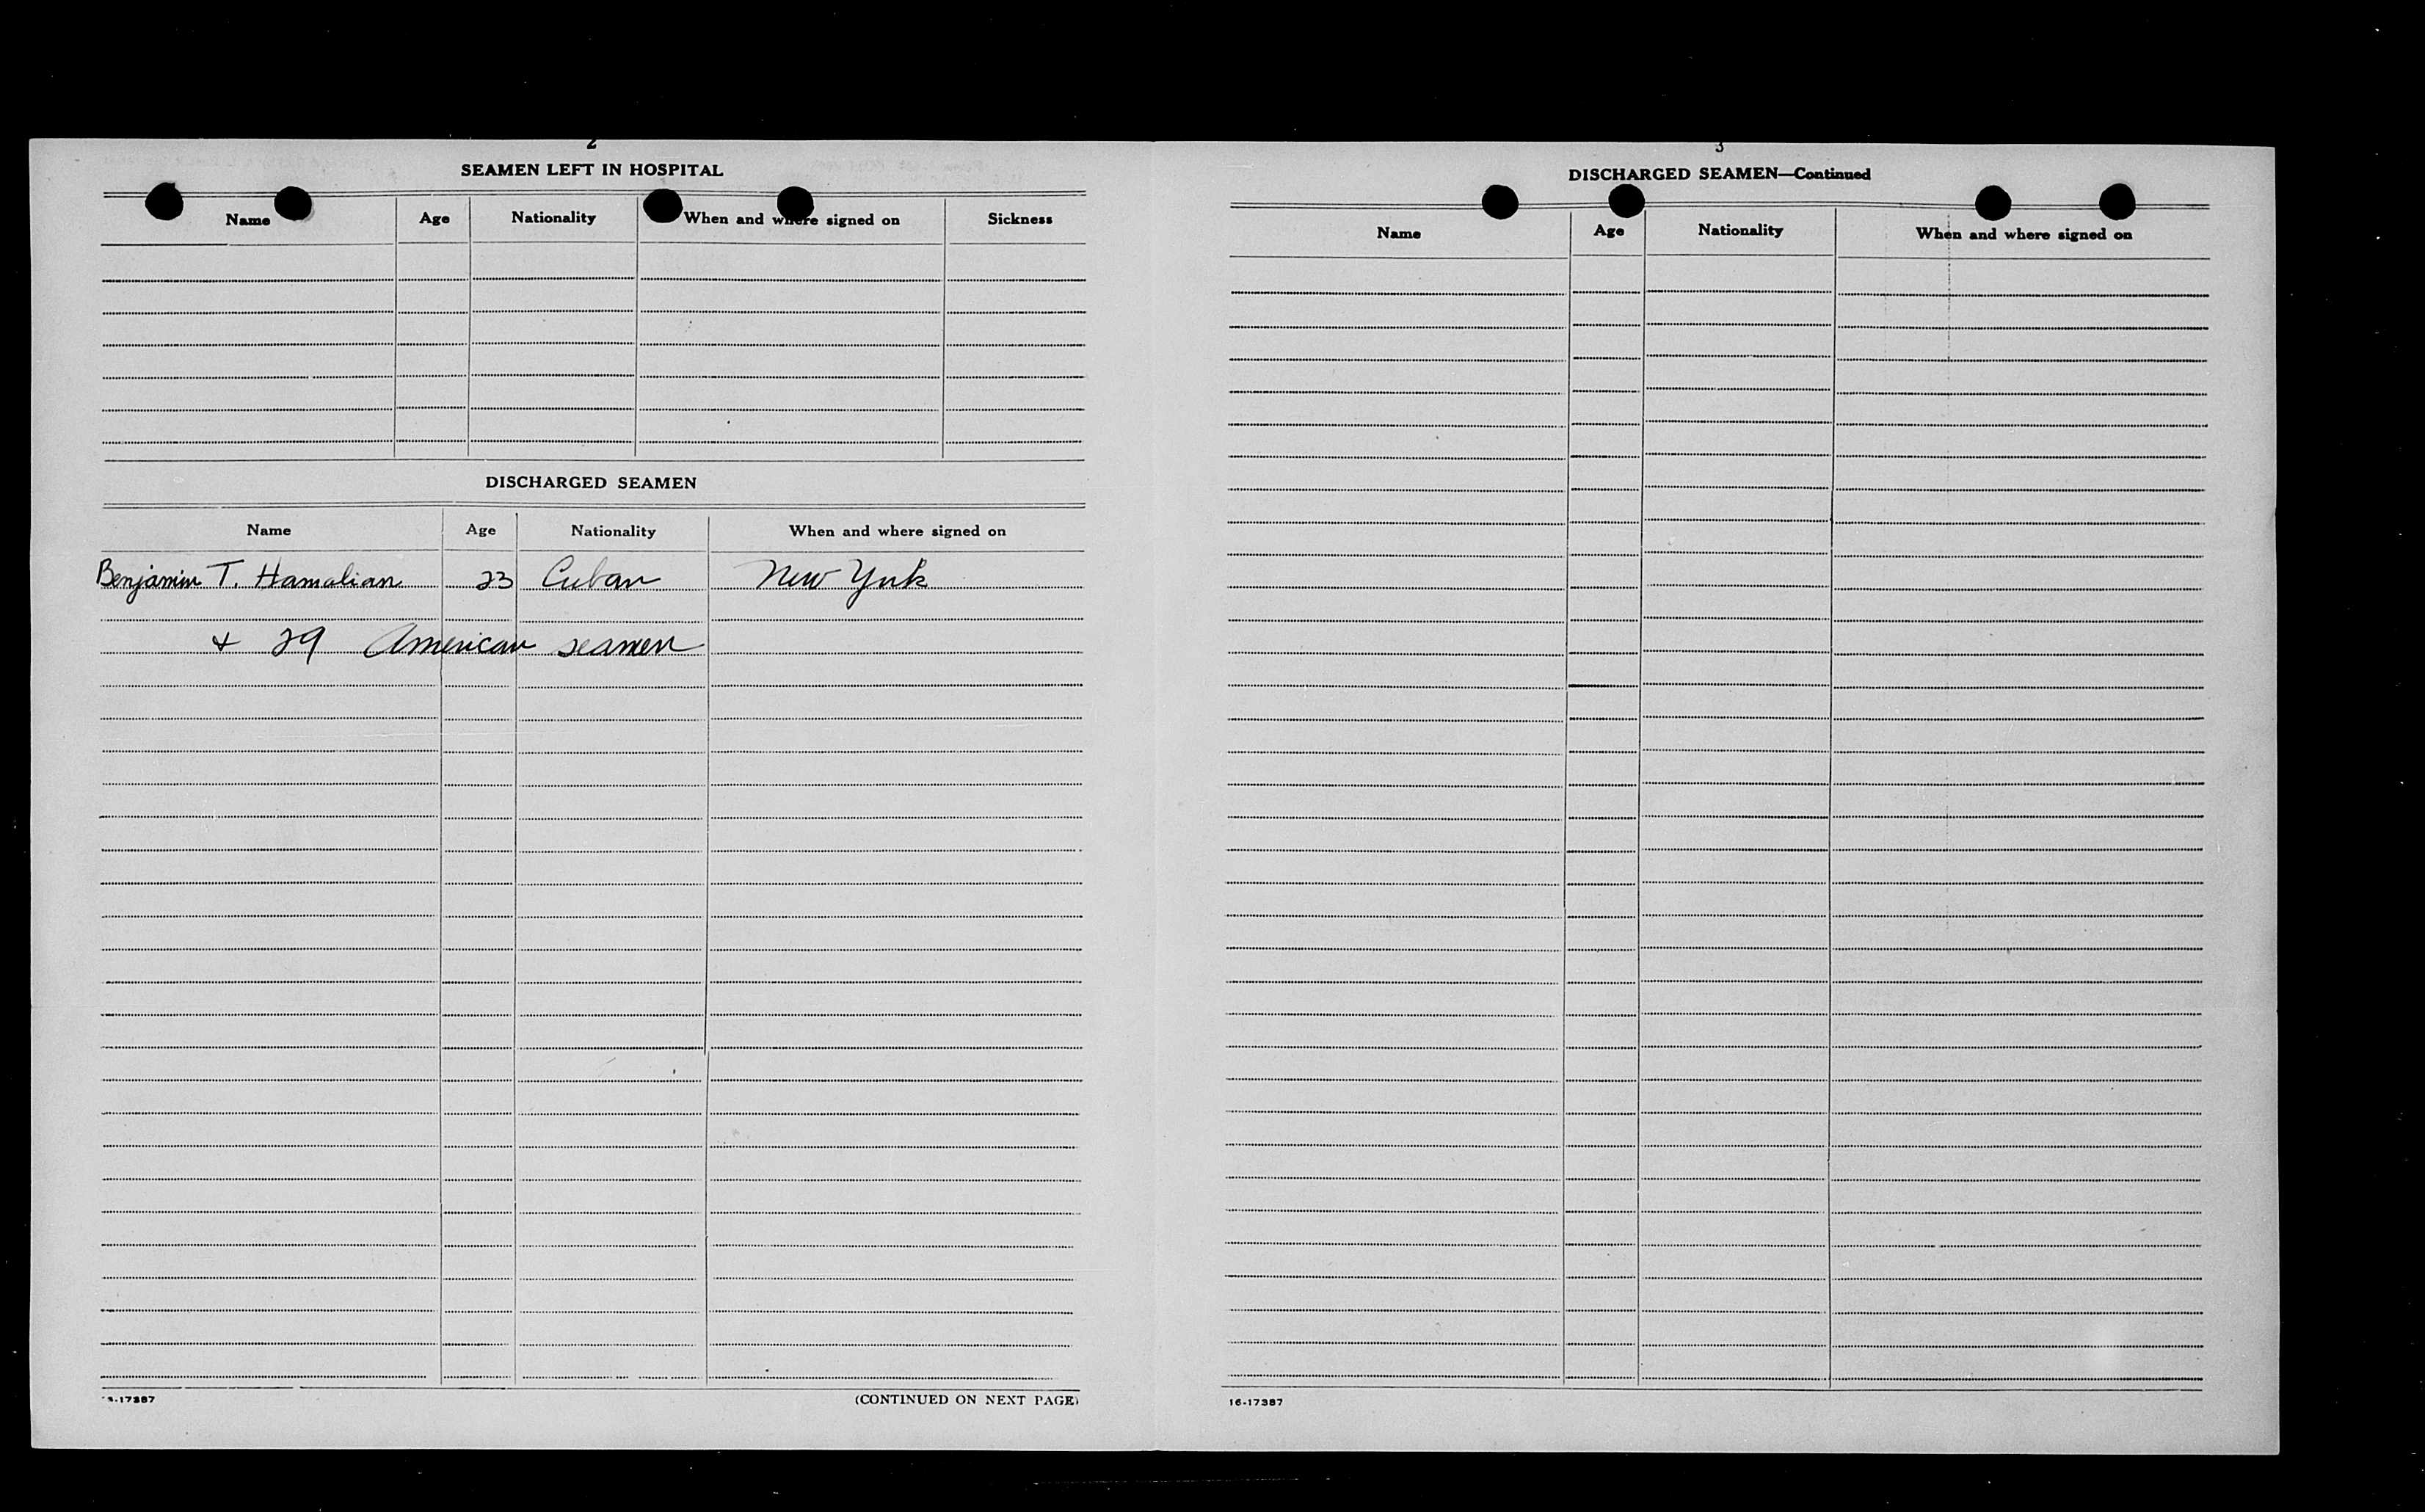 2
SEAMEN LEFT IN HOSPITAL
Name Age Nationality When and where signed on Sickness
DISCHARGED SEAMEN
Name Age Nationality When and where signed on
Benjamin T. Hamalian 23 Cuban New York
+ 29 American seamen
(CONTINUED ON NEXT PAGE)
3
DISCHARGED SEAMEN—Continued
Name Age Nationality When and where signed on
16-17387